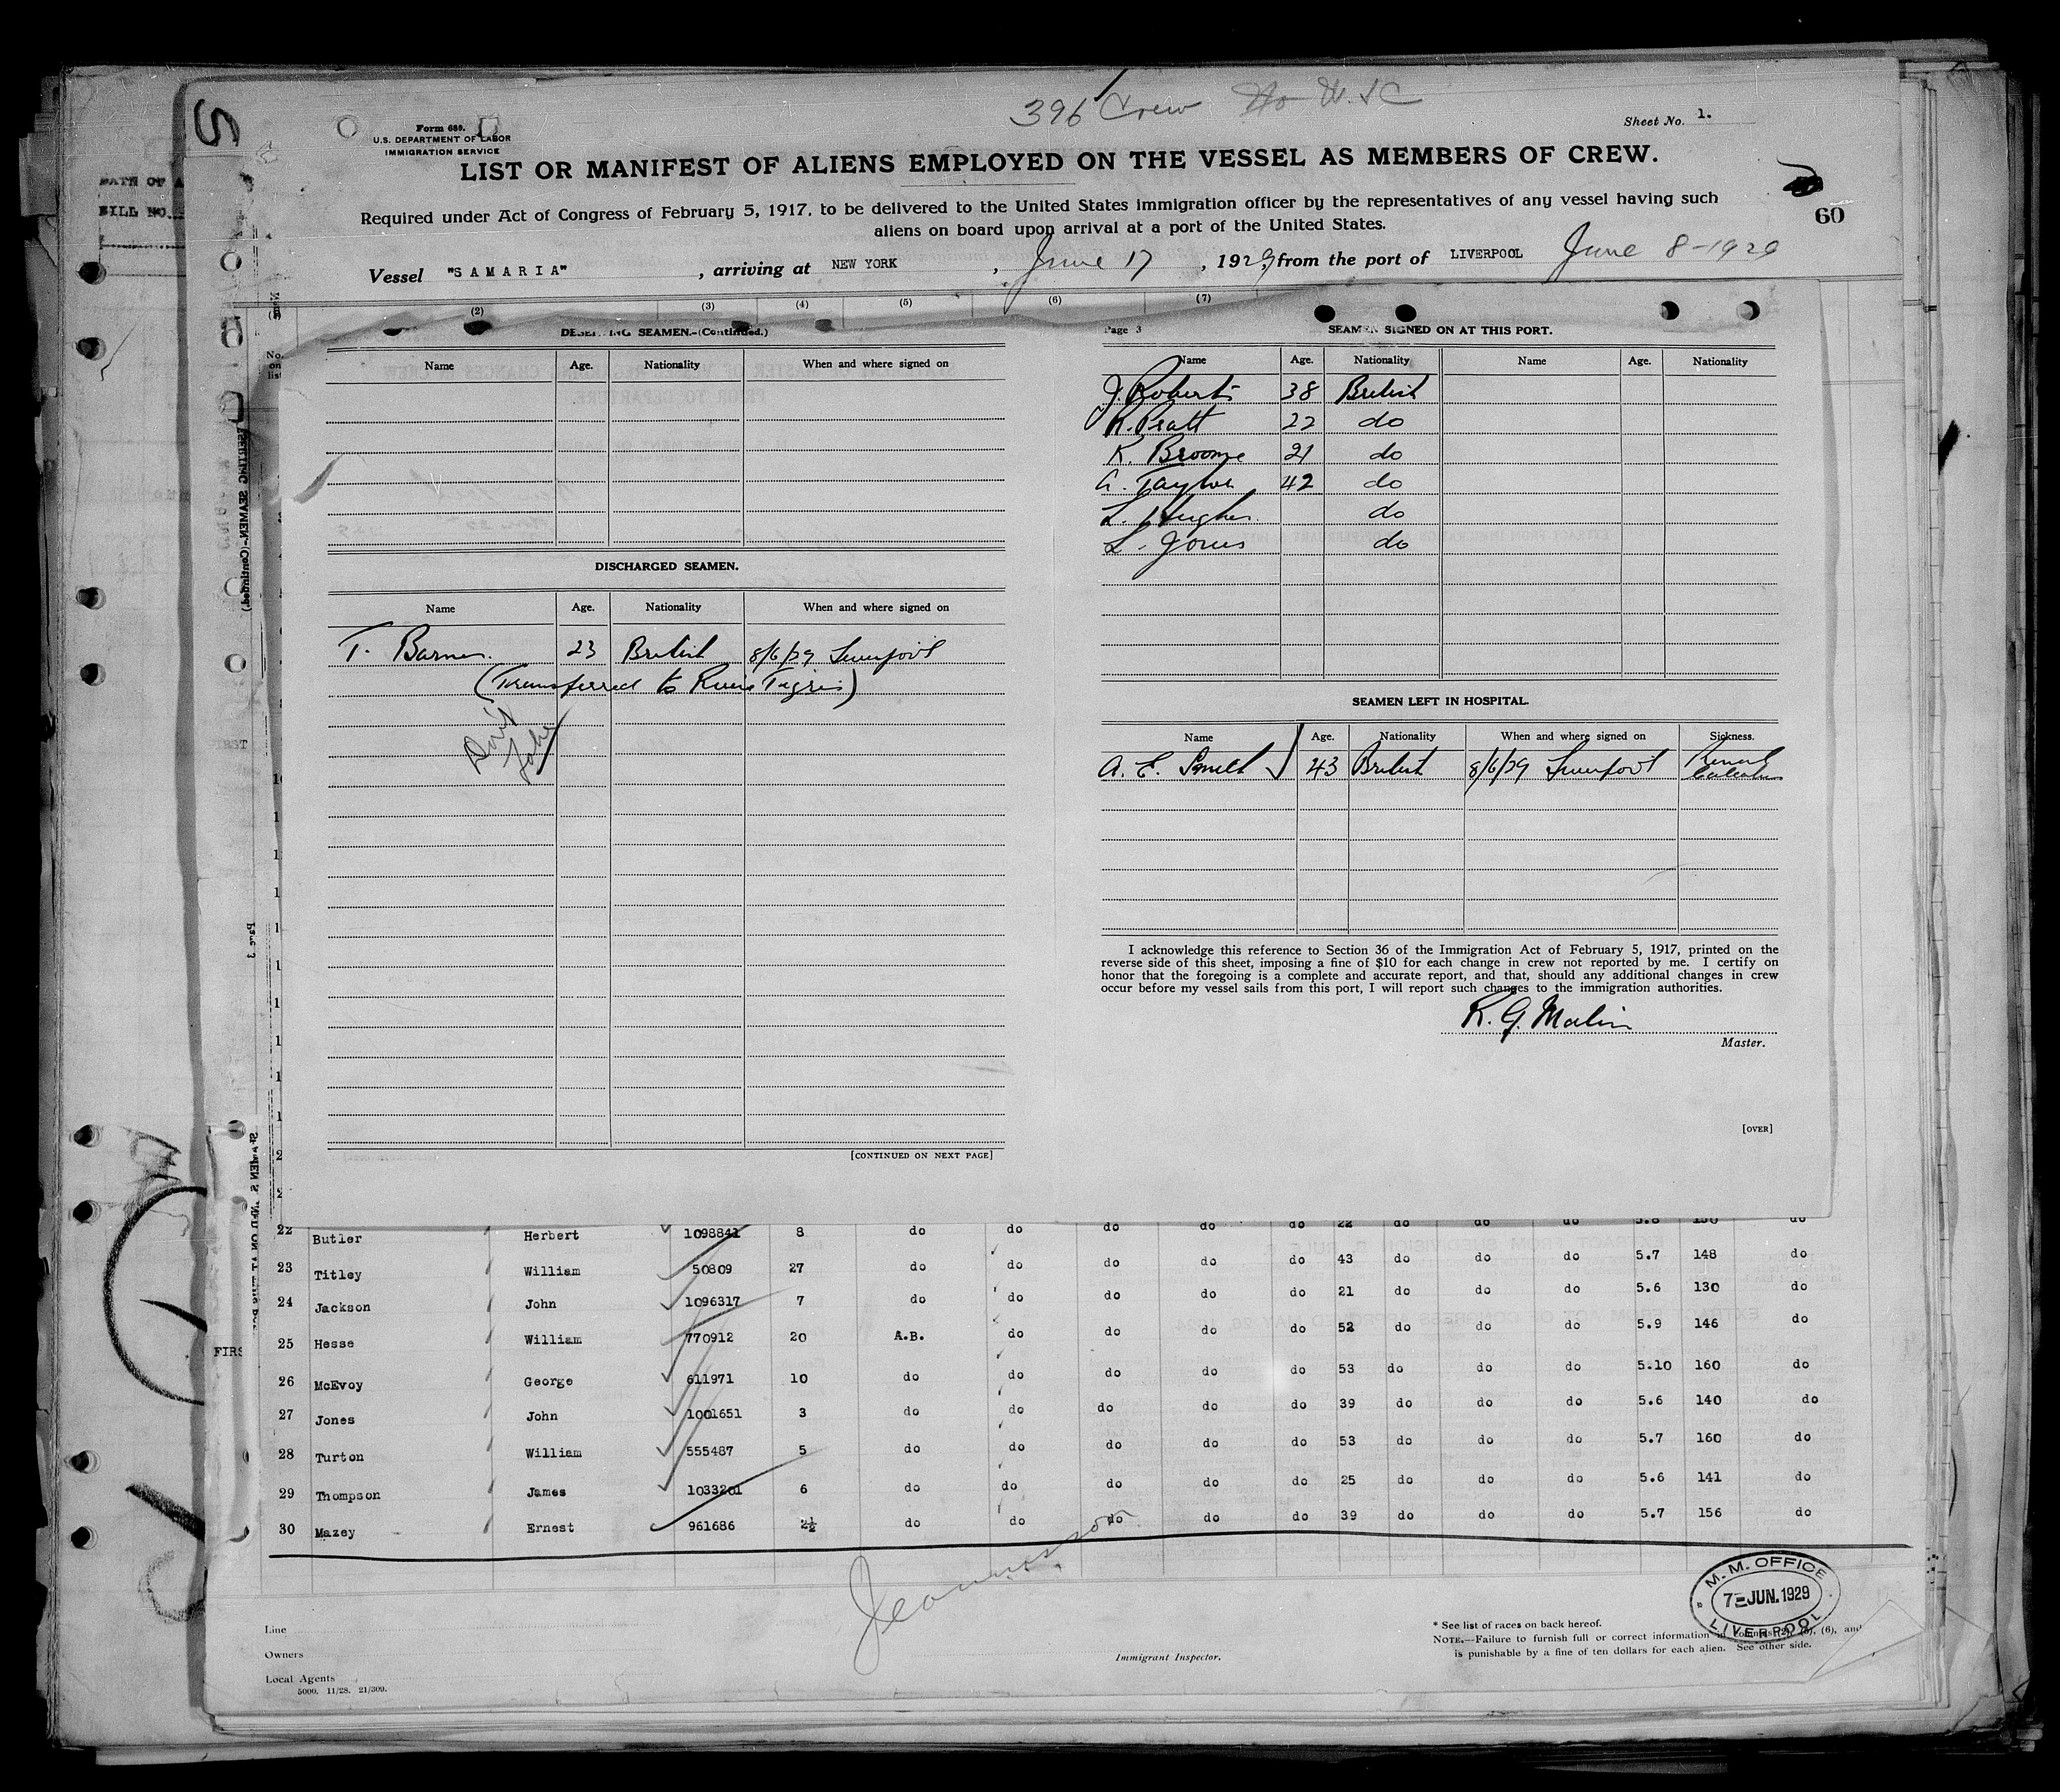 396 Crew No W.S.C
Form 689.
U.S. DEPARTMENT OF LABOR
IMMIGRATION SERVICE
Sheet No. 1.
LIST OR MANIFEST OF ALIENS EMPLOYED ON THE VESSEL AS MEMBERS OF CREW.
Required under Act of Congress of February 5, 1917, to be delivered to the United States immigration officer by the representatives of any vessel having such
aliens on board upon arrival at a port of the United States.
60
Vessel "SAMARIA", arriving at NEW YORK, June 17, 1929, from the port of LIVERPOOL June 8-1929
(2) (3) (4) (5) (6) (7)
No. on list
DESERTING SEAMEN.-(Continued.)
Name Age. Nationality When and where signed on
DISCHARGED SEAMEN.
Name Age. Nationality When and where signed on
T. Barnes. 23 British 8/6/29 Liverpool
(Transferred to River Tigris)
[CONTINUED ON NEXT PAGE]
Page 3
SEAMEN SIGNED ON AT THIS PORT.
Name Age. Nationality Name Age. Nationality
J. Roberts 38 British
R. Pratt 22 do
K. Broome 21 do
A. Taylor 42 do
L. Hughes. do
L. Jones do
SEAMEN LEFT IN HOSPITAL.
Name Age. Nationality When and where signed on Sickness.
A. E. Smith 43 British 8/6/29 Liverpool Renal Calculus
I acknowledge this reference to Section 36 of the Immigration Act of February 5, 1917, printed on the
reverse side of this sheet, imposing a fine of $10 for each change in crew not reported by me. I certify on
honor that the foregoing is a complete and accurate report, and that, should any additional changes in crew
occur before my vessel sails from this port, I will report such changes to the immigration authorities.
R. G. Malin
Master.
[OVER]
22 Butler Herbert 1098841 8 do do do do do 22 do do do 5.8 150 do
23 Titley William 50809 27 do do do do do 43 do do do 5.7 148 do
24 Jackson John 1096317 7 do do do do do 21 do do do 5.6 130 do
25 Hesse William 770912 20 A.B. do do do do 52 do do do 5.9 146 do
26 McEvoy George 611971 10 do do do do do 53 do do do 5.10 160 do
27 Jones John 1001651 3 do do do do do 39 do do do 5.6 140 do
28 Turton William 555487 5 do do do do do 53 do do do 5.7 160 do
29 Thompson James 1033201 6 do do do do do 25 do do do 5.6 141 do
30 Mazey Ernest 961686 2½ do do do do do 39 do do do 5.7 156 do
Line
Owners
Local Agents
5000. 11/28. 21/309.
Immigrant Inspector.
M. M. OFFICE
7-JUN.1929
LIVERPOOL
* See list of races on back hereof.
NOTE.—Failure to furnish full or correct information in columns (2), (5), (6), and
is punishable by a fine of ten dollars for each alien. See other side.